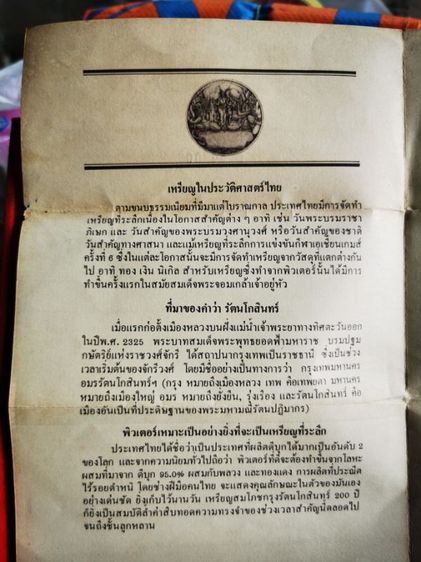 เหรียญในประวัติศาสตร์ไทย
ตามขนบธรรมเนียมที่มีมาแต่โบราณกาล ประเทศไทยมีการจัดทำ
เหรียญที่ระลึกเนื่องในโอกาสสำคัญต่าง ๆ อาทิ เช่น วันพระบรมราชา
ภิเษก และ วันสำคัญของพระบรมวงศานุวงศ์ หรือวันสำคัญของชาติ
วันสำคัญทางศาสนา และแม้เหรียญที่ระลึกการแข่งขันกีฬาเอเชี่ยนเกมส์
ครั้งที่ 6 ซึ่งในแต่ละโอกาสนั้นจะมีการจัดทำเหรียญจากวัสดุที่แตกต่างกัน
ไป อาทิ ทอง เงิน นิเกิล สำหรับเหรียญซึ่งทำจากพิวเตอร์นั้นได้มีการ
ทำขึ้นครั้งแรกในสมัยสมเด็จพระจอมเกล้าเจ้าอยู่หัว
ที่มาของคำว่า รัตนโกสินทร์
เมื่อแรกก่อตั้งเมืองหลวงบนฝั่งแม่น้ำเจ้าพระยาทางทิศตะวันออก
ในปีพ.ศ. 2325 พระบาทสมเด็จพระพุทธยอดฟ้ามหาราช บรมปฐม
กษัตริย์แห่งราชวงศ์จักรี ได้สถาปนากรุงเทพเป็นราชธานี ซึ่งเป็นช่วง
เวลาเริ่มต้นของจักรีวงศ์ โดยมีชื่ออย่างเป็นทางการว่า กรุงเทพมหานคร
อมรรัตนโกสินทร์ฯ (กรุง หมายถึงเมืองหลวง เทพ คือเทพยดา มหานคร
หมายถึงเมืองใหญ่ อมร หมายถึงยั่งยืน, รุ่งเรือง และรัตนโกสินทร์ คือ
เมืองอันเป็นที่ประดิษฐานของพระมหามณีรัตนปฏิมากร)
พิวเตอร์เหมาะเป็นอย่างยิ่งที่จะเป็นเหรียญที่ระลึก
ประเทศไทยได้ชื่อว่าเป็นประเทศที่ผลิตดีบุกได้มากเป็นอันดับ 2
ของโลก และจากความนิยมทั่วไปถือว่า พิวเตอร์ที่ดีจะต้องทำขึ้นจากโลหะ
ผสมที่มาจาก ดีบุก 95.0% ผสมกับพลวง และทองแดง การผลิตที่ประณีต
ไร้รอยตำหนิ โดยช่างฝีมือคนไทย จะแสดงคุณลักษณะในตัวของมันเอง
อย่างเด่นชัด ยิ่งเก็บไว้นานวัน เหรียญสมโภชกรุงรัตนโกสินทร์ 200 ปี
ก็ยิ่งเป็นสมบัติล้ำค่าสืบทอดความทรงจำของช่วงเวลาสำคัญนี้ตลอดไป
จนถึงชั้นลูกหลาน